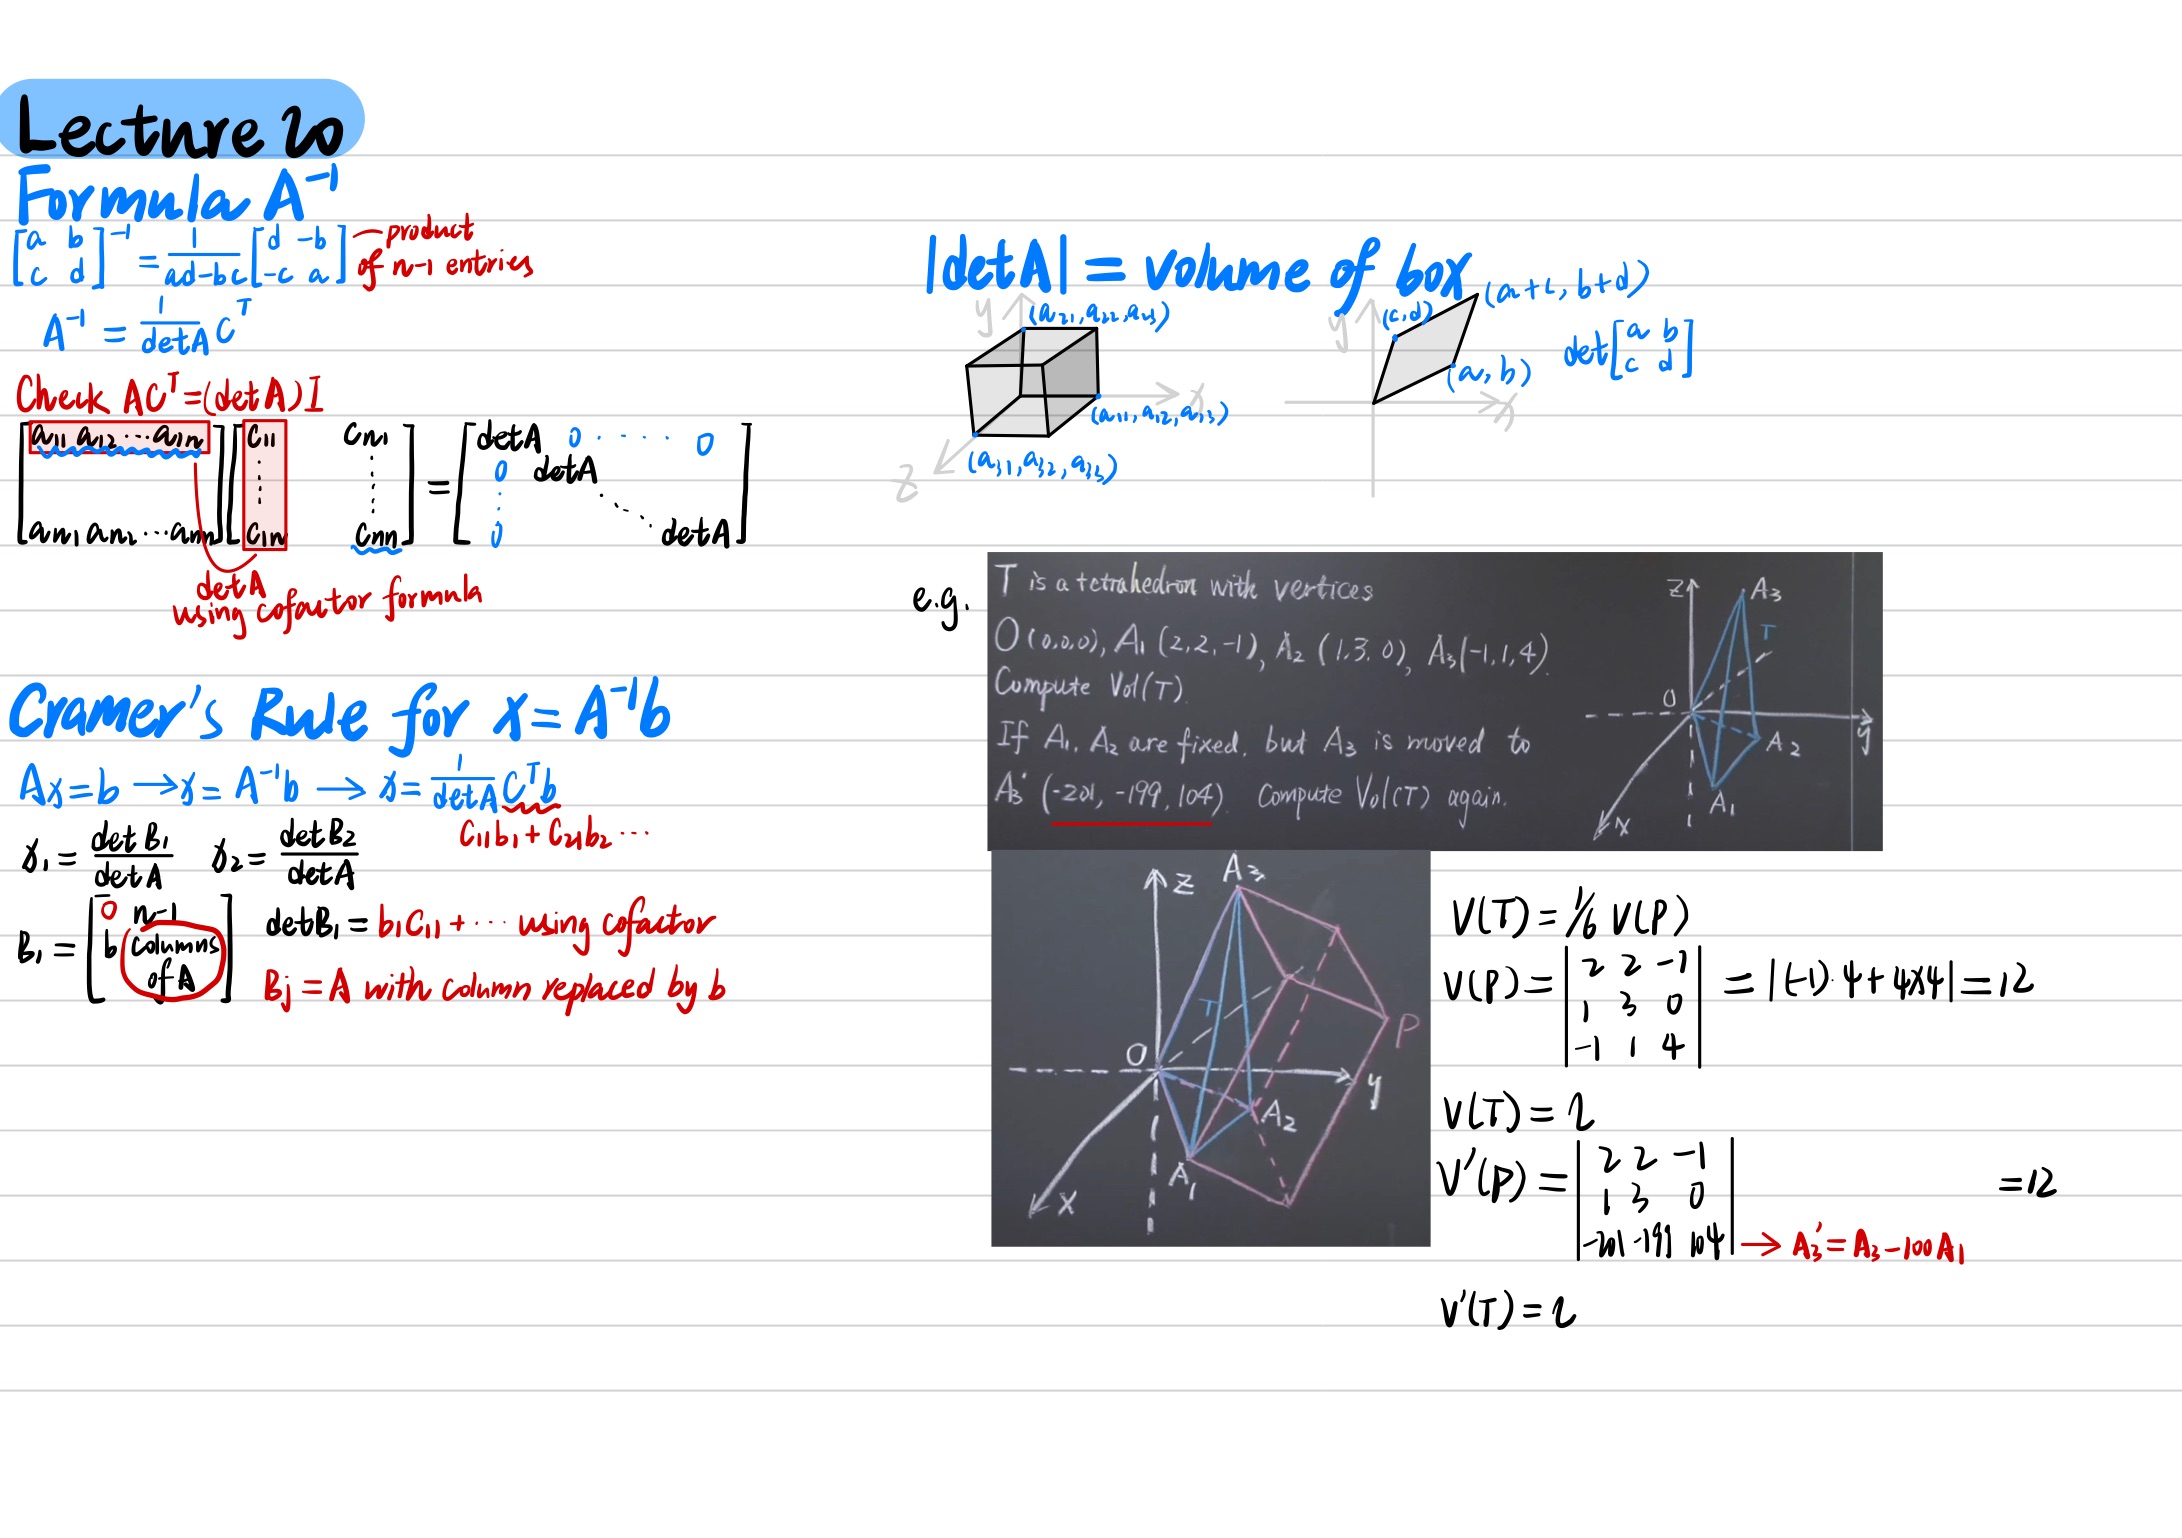 Lecture 20
Formula A⁻¹
[a b; c d]⁻¹ = 1/(ad-bc) [d -b; -c a] product of n-1 entries
A⁻¹ = 1/detA Cᵀ
Check ACᵀ=(detA)I
[a₁₁ a₁₂ ⋯ a₁ₙ; aₙ₁ aₙ₂ ⋯ aₙₙ] [C₁₁ ⋯ C₁ₙ Cₙ₁ ⋯ Cₙₙ] = [detA 0 ⋯ 0; 0 detA ⋯; 0 detA]
detA
using cofactor formula
Cramer's Rule for x=A⁻¹b
Ax=b → x= A⁻¹b → x= 1/detA Cᵀb
C₁₁b₁ + C₂₁b₂ ⋯
x₁= detB₁/detA x₂= detB₂/detA
B₁ = [b n-1 columns of A] detB₁ = b₁C₁₁ + ⋯ using cofactor
Bj = A with column replaced by b
|detA| = volume of box
y (a₂₁,a₂₂,a₂₃)
x
(a₁₁,a₁₂,a₁₃)
z (a₃₁,a₃₂,a₃₃)
y (c,d) (a+c, b+d)
(a,b) det[a b; c d]
x
e.g.
T is a tetrahedron with vertices
O(0,0,0), A₁(2,2,-1), A₂(1,3,0), A₃(-1,1,4).
Compute Vol(T).
If A₁, A₂ are fixed, but A₃ is moved to
A₃'(-201, -199, 104). Compute Vol(T) again.
z A₃
T
O
y
A₂
A₁
x
z A₃
T
P
O
y
A₂
A₁
x
V(T) = 1/6 V(P)
V(P) = |2 2 -1; 1 3 0; -1 1 4| = |(-1)·4 + 4×4| = 12
V(T) = 2
V'(P) = |2 2 -1; 1 3 0; -201 -199 104| = 12
→ A₃' = A₃ - 100A₁
V'(T) = 2